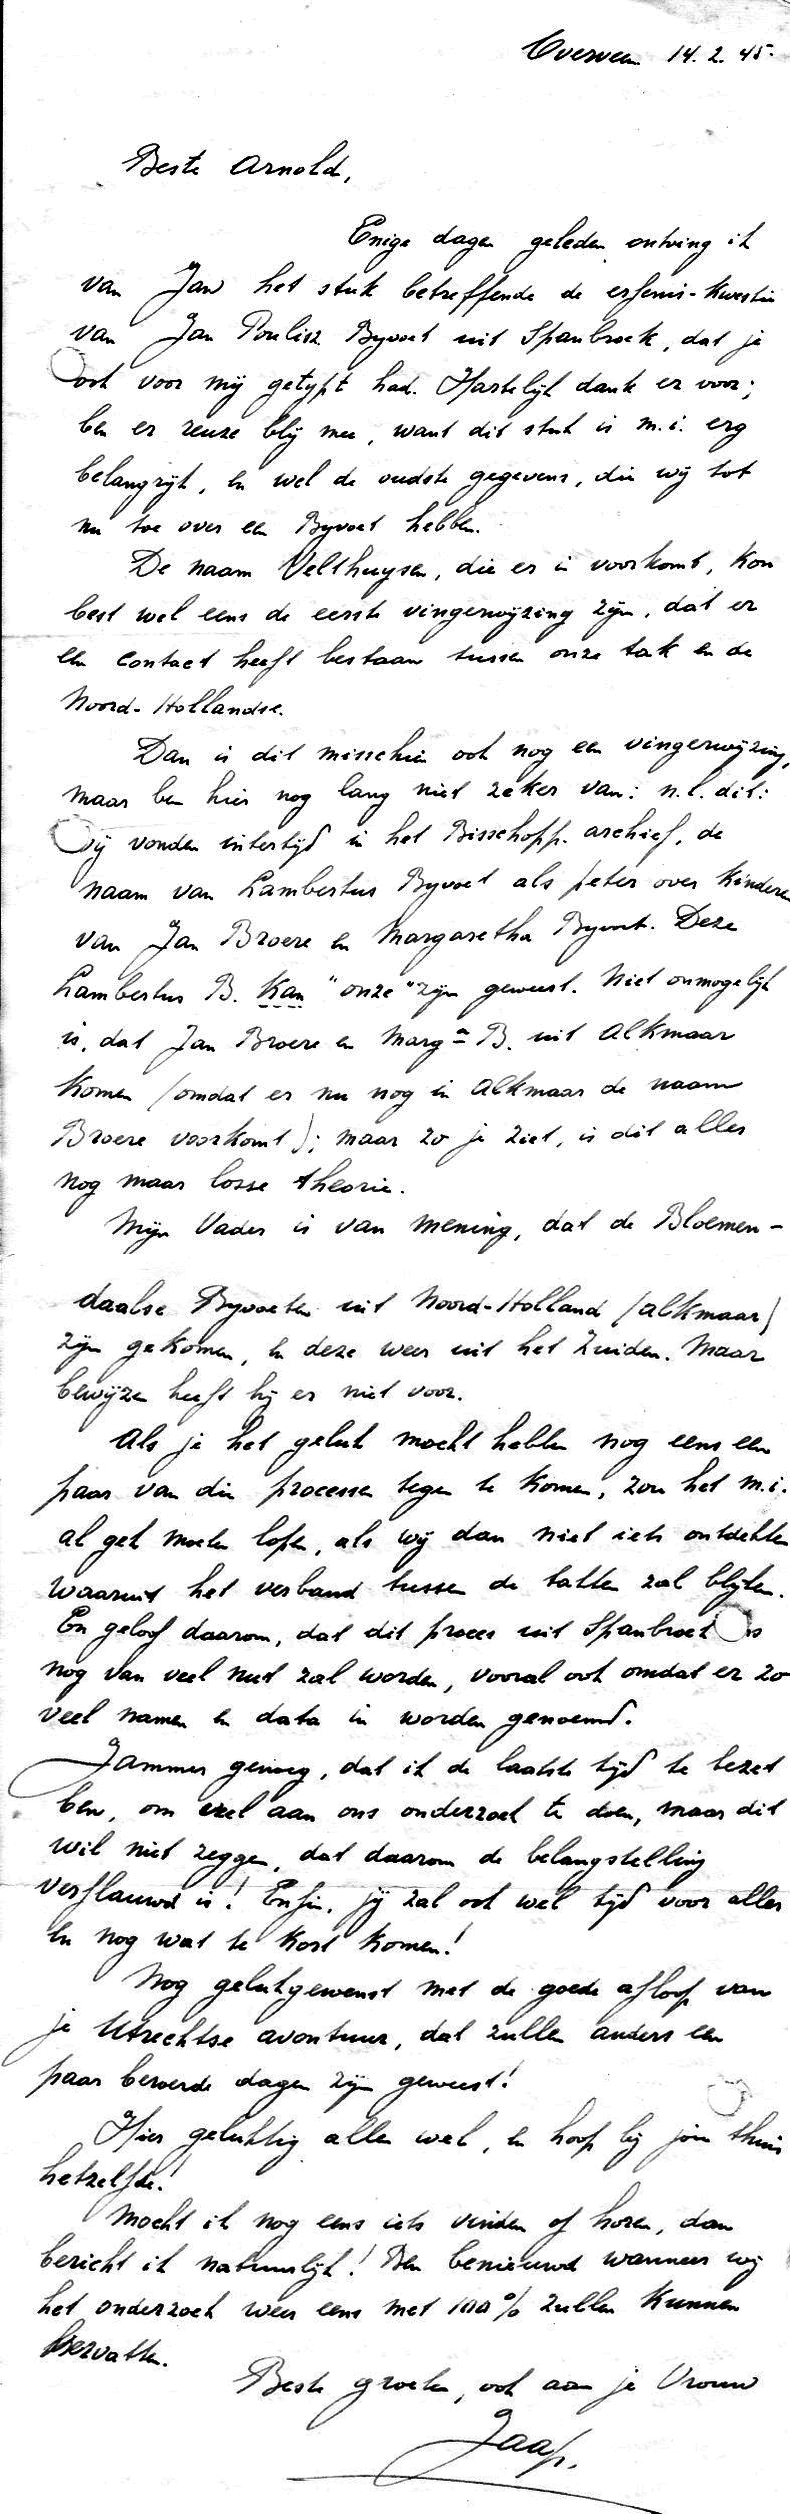 Overveen 14.2.45.
Beste Arnold,
Enige dagen geleden ontving ik
van Jan het stuk betreffende de erfenis-kwestie
van Jan Poulisz Byvoet uit Spanbroek, dat je
ook voor mij getypt had. Hartelijk dank er voor;
ben er reuze blij mee, want dit stuk is m.i. erg
belangrijk, en wel de oudste gegevens, die wij tot
nu toe over een Byvoet hebben.
De naam Velthuysen, die er in voorkomt, kon
best wel eens de eerste vingerwijzing zijn, dat er
een contact heeft bestaan tussen onze tak en de
Noord-Hollandse.
Dan is dit misschien ook nog een vingerwijzing,
maar ben hier nog lang niet zeker van: n.l. dit:
Wij vonden intertijd in het Bisschopp. archief, de
naam van Lambertus Byvoet als peter over kinderen
van Jan Broere en Margaretha Byvoet. Deze
Lambertus B. kan "onze" zijn geweest. Niet onmogelijk
is, dat Jan Broere en Marg.a B. uit Alkmaar
komen (omdat er nu nog in Alkmaar de naam
Broere voorkomt); maar zo je ziet, is dit alles
nog maar losse theorie.
Mijn Vader is van mening, dat de Bloemen-
daalse Byvoeten uit Noord-Holland (Alkmaar)
zijn gekomen, en deze weer uit het Zuiden. Maar
bewijzen heeft hij er niet voor.
Als je het geluk mocht hebben nog eens een
paar van die processen tegen te komen, zou het m.i.
al gek moeten lopen, als wij dan niet iets ontdekten
waaruit het verband tussen de takken zal blijken.
En geloof daarom, dat dit proces uit Spanbroek ons
nog van veel nut zal worden, vooral ook omdat er zo
veel namen en data in worden genoemd.
Jammer genoeg, dat ik de laatste tijd te bezet
ben, om veel aan ons onderzoek te doen, maar dit
wil niet zeggen, dat daarom de belangstelling
verflauwd is! Enfin, jij zal ook wel tijd voor alles
en nog wat te kort komen!
Nog gelukgewenst met de goede afloop van
je Utrechtse avontuur, dat zullen anders een
paar beroerde dagen zijn geweest!
Hier gelukkig alles wel, en hoop bij jou thuis
hetzelfde!
Mocht ik nog eens iets vinden of horen, dan
bericht ik natuurlijk! Ben benieuwd wanneer wij
het onderzoek weer eens met 100% zullen kunnen
hervatten.
Beste groeten, ook aan je Vrouw
Jaap.